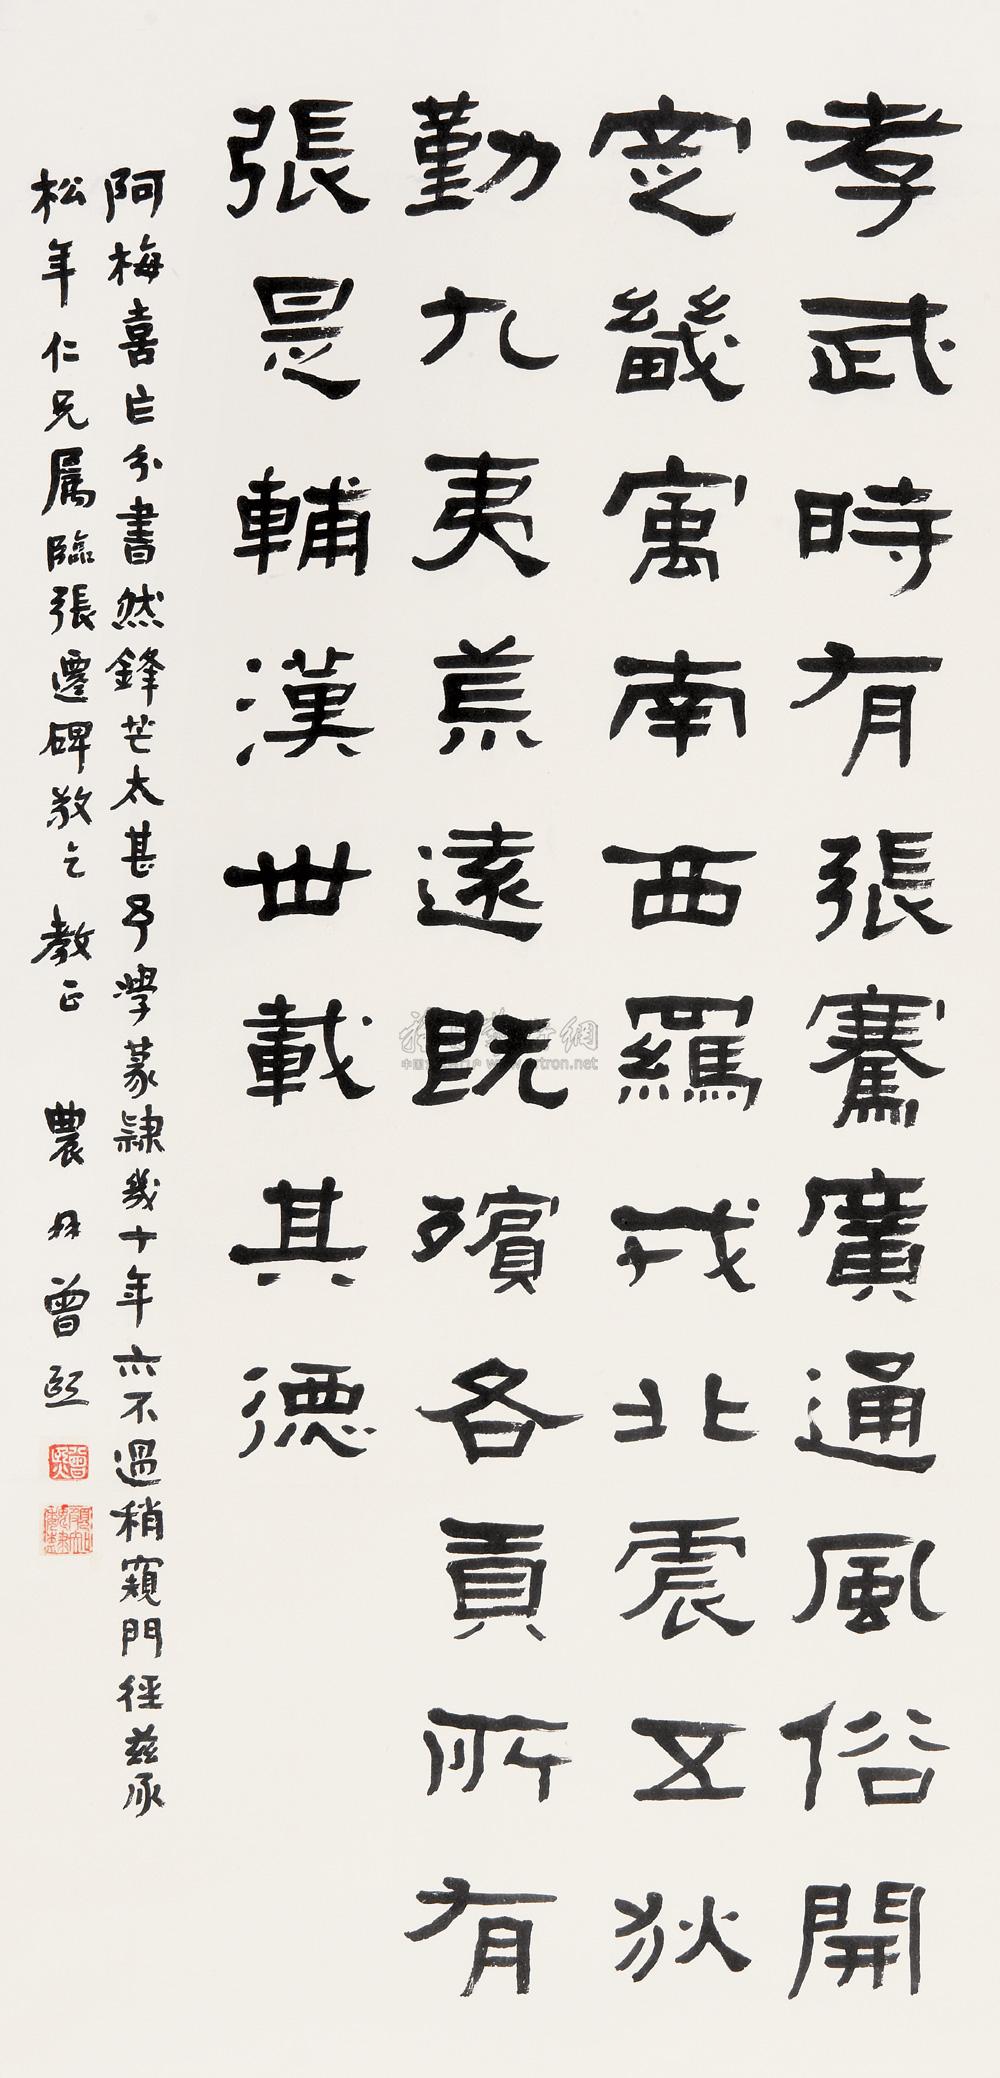 孝武時有張騫廣通風俗開
定畿寓南西羈戎北震五狄
勤九夷荒遠既殯各貢所有
張是輔漢世載其德
阿梅喜作分書然鋒芒太甚予學篆隸幾十年亦不過稍窺門徑茲承
松年仁兄属臨張遷碑敬乞教正 農髯曾熙
曾熙